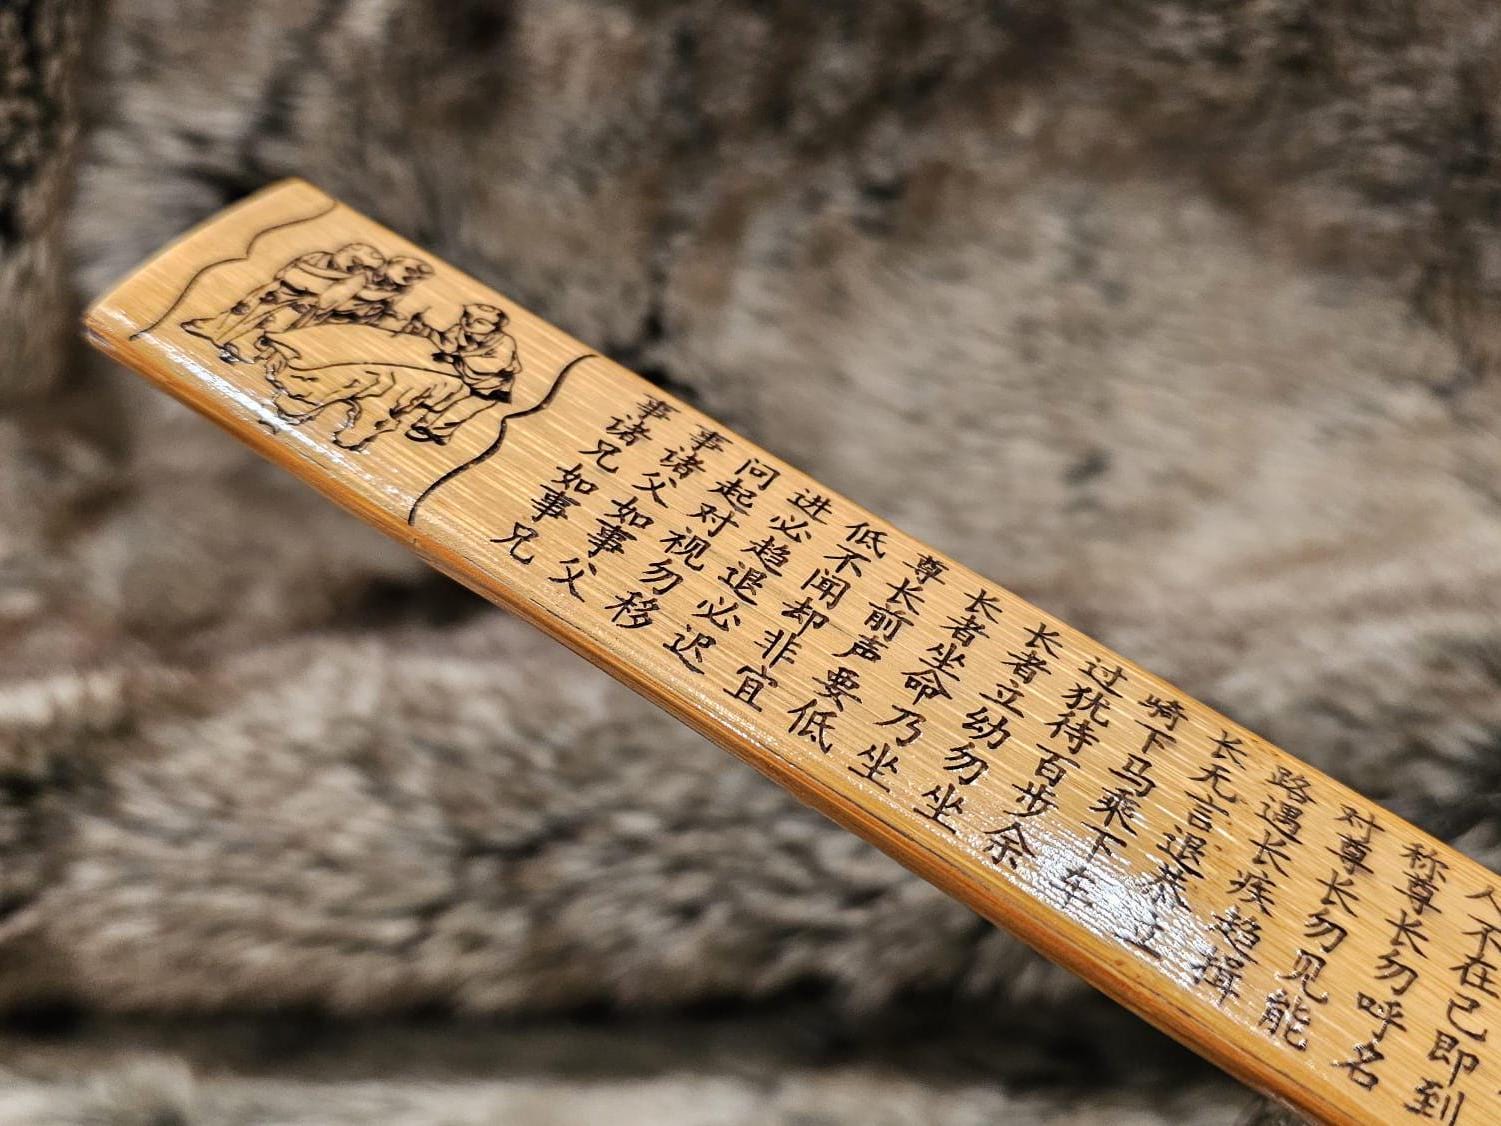 人不在己即到
称尊长勿呼名
对尊长勿见能
路遇长疾趋揖
长无言退恭立
骑下马乘下车
过犹待百步余
长者立幼勿坐
长者坐命乃坐
尊长前声要低
低不闻却非宜
进必趋退必迟
问起对视勿移
事诸父如事父
事诸兄如事兄